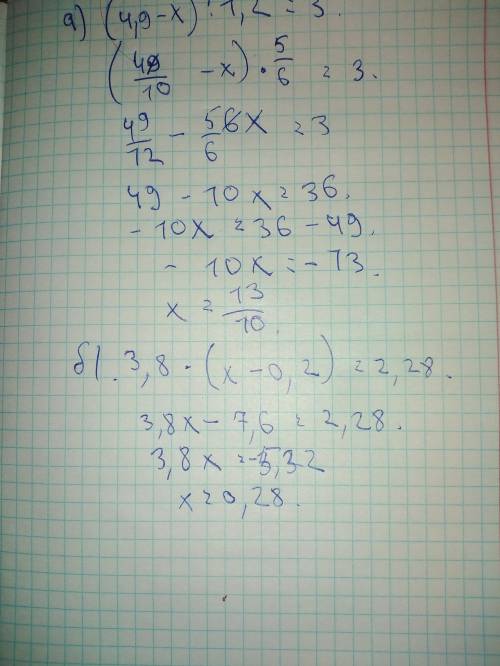 а) (4,9-x) : 1,2 = 3.
(49/10 - x) · 5/6 = 3.
49/12 - 5/6 x = 3
49 - 10x = 36.
- 10x = 36 - 49.
- 10x = - 13.
x = 13/10.
б). 3,8 · (x-0,2) = 2,28.
3,8x - 7,6 = 2,28.
3,8x = -5,32
x = 0,28.